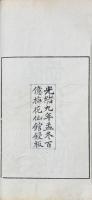 光緒九年孟冬百
億梅花仙館鋟板